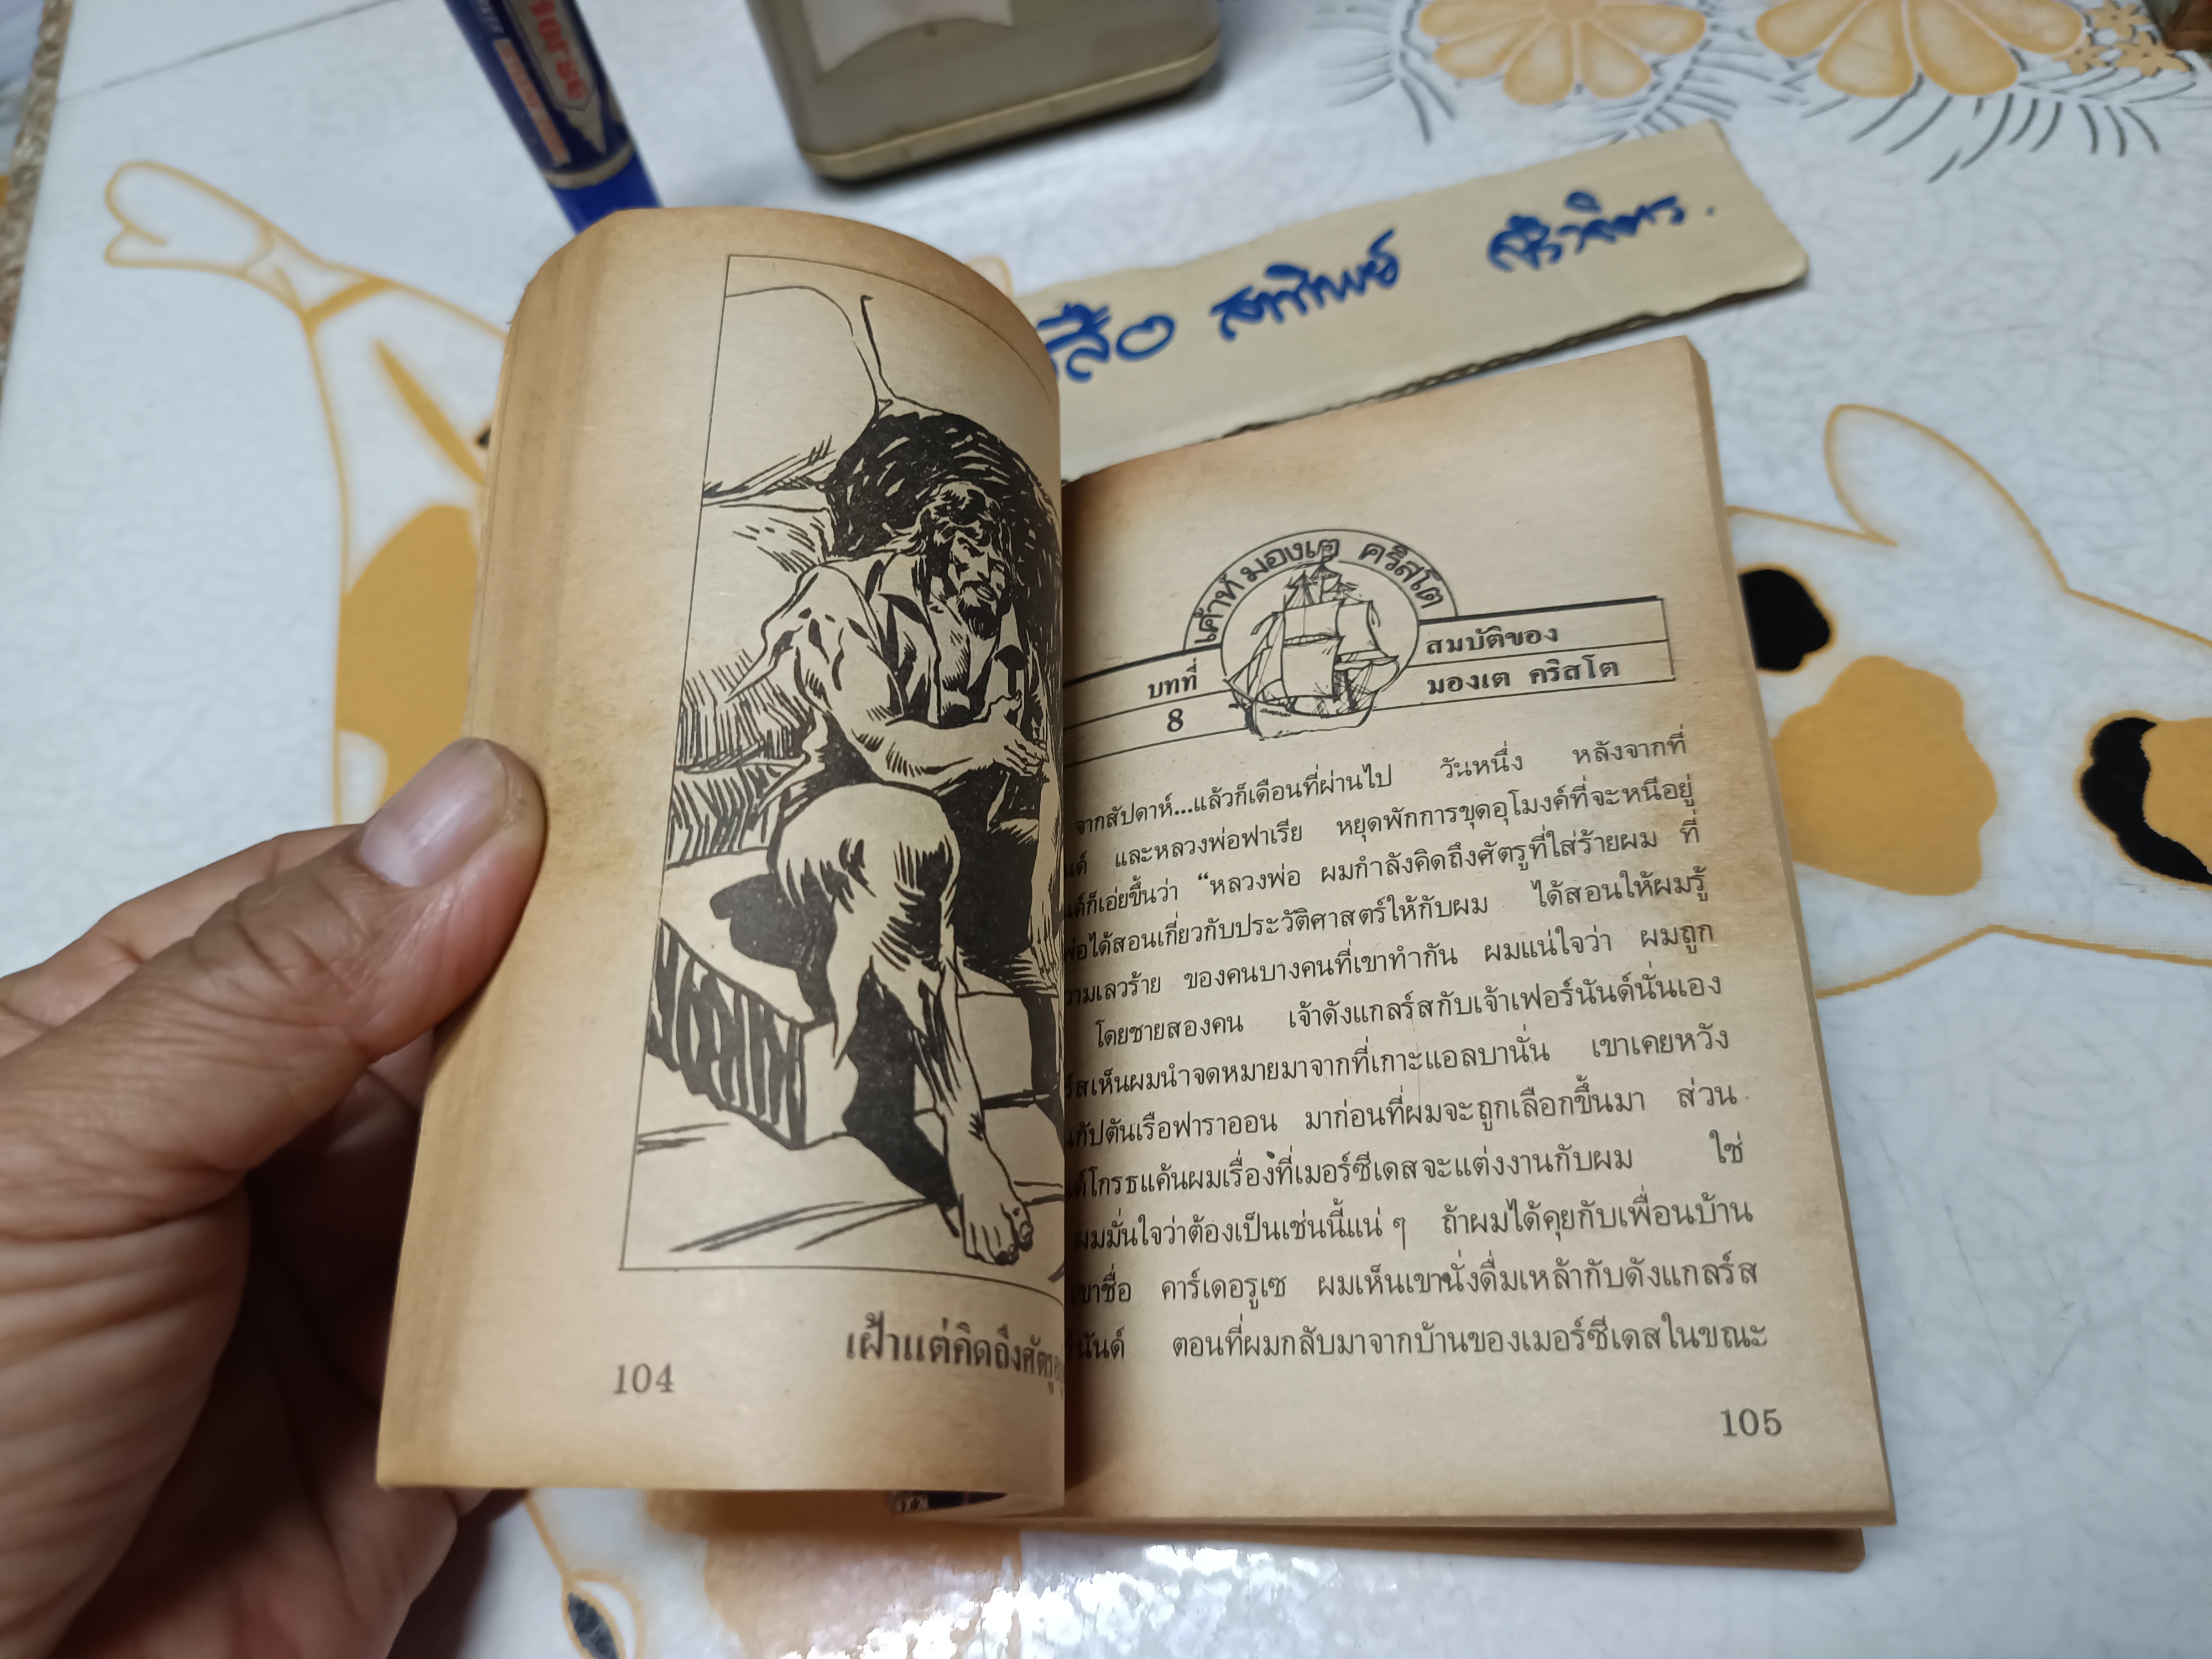 Horse
สือ สุทิพย์
เค้าท์ มองเต คริสโต
บทที่
8
สมบัติของ
มองเต คริสโต
จากสัปดาห์...แล้วก็เดือนที่ผ่านไป วันหนึ่ง หลังจากที่
นด์ และหลวงพ่อฟาเรีย หยุดพักการขุดอุโมงค์ที่จะหนีอยู่
นด์ก็เอ่ยขึ้นว่า “หลวงพ่อ ผมกำลังคิดถึงศัตรูที่ใส่ร้ายผม ที่
พ่อได้สอนเกี่ยวกับประวัติศาสตร์ให้กับผม ได้สอนให้ผมรู้
วามเลวร้าย ของคนบางคนที่เขาทำกัน ผมแน่ใจว่า ผมถูก
โดยชายสองคน เจ้าดังแกลร์สกับเจ้าเฟอร์นันด์นั่นเอง
ร์สเห็นผมนำจดหมายมาจากที่เกาะแอลบานั่น เขาเคยหวัง
นกัปตันเรือฟาราออน มาก่อนที่ผมจะถูกเลือกขึ้นมา ส่วน
ด์โกรธแค้นผมเรื่องที่เมอร์ซีเดสจะแต่งงานกับผม ใช่
ผมมั่นใจว่าต้องเป็นเช่นนี้แน่ ๆ ถ้าผมได้คุยกับเพื่อนบ้าน
เขาชื่อ คาร์เดอรูเซ ผมเห็นเขานั่งดื่มเหล้ากับดังแกลร์ส
นันด์ ตอนที่ผมกลับมาจากบ้านของเมอร์ซีเดสในขณะ
105
เฝ้าแต่คิดถึงศัตรู
104